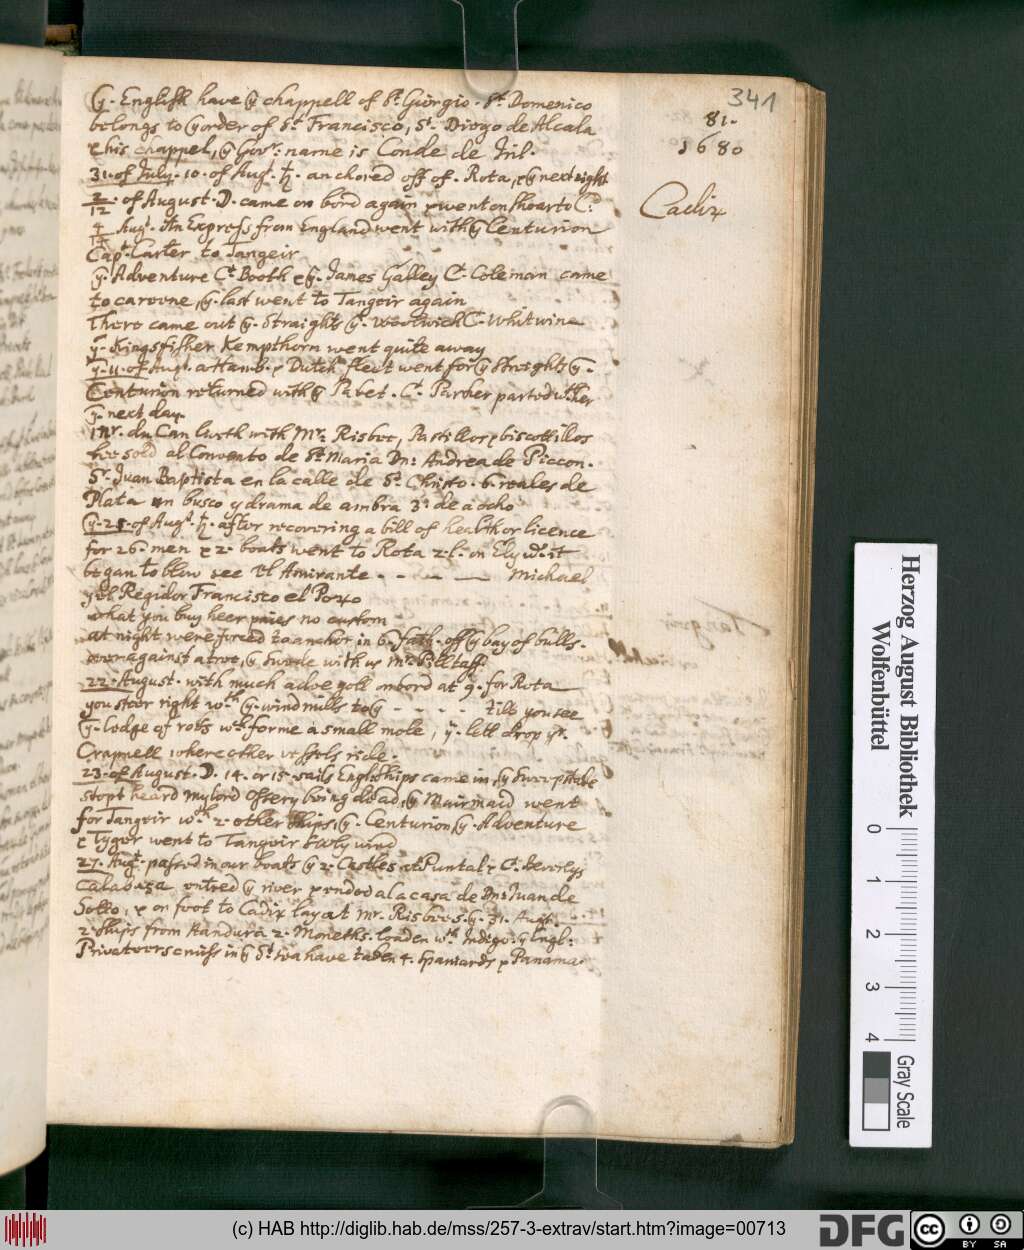 341
81.
1680
Cadix
ỹ. English have ỹ chappell of St. Giorgio. St. Domenico
belongs to ỹ order of St. Francisco, St. Diego de Alcala
& his chappel, ỹ Govr: name is Conde de
31. of July. 10. of Aug. ♄. anchored off of. Rota, & ỹ next night
2/12. of August. D. came on bord again & went on shoar to C:
4/14 Augt. An Express from England went with ỹ Centurion
Capt. Carter to Tangeir
ỹ. Adventure Ct. Booth & ỹ. James Galley Ct. Coleman came
to careene, ỹ. last went to Tangeir again
There came out ỹ. Straights ỹ. Woolwich C. Whitwine
ỹ. Kingsfisher Kempthorn went quite away
ỹ. 11. of Augt. a Hamb. & Dutch fleet went for ỹ Streights ỹ.
Centurion returned with ỹ Pabet. Ct. Parker parted wth her
ỹ. next day.
Mr. dunCan liveth with Mr. Risbee, Pastillor & biscottillos
hee sold al Convento de St. Maria Dn: Andrea de Piccon.
Sr. Juan Baptista en la calle de St. Christo. 6. reales de
Plata un busco y drama de ambra 3: de a ocho
ỹ. 21. of Augt. ♄. after recovering a bill of health or licence
for 26. men & 2. boats went to Rota 2. l. on Ely wd. it
began to blow see El Amirante - - - Michael
y el Regidor Francisco el Poxo
what you buy heer paies no custom
at night were forced to anchor in 6. fath. off ỹ bay of bulls.
over against a tree, ỹ Swede with us Mr. Pelltaff
22. August. with much adoe gott on bord at 9. for Rota
you steer right wth ỹ. windmills to ỹ - - - - till you see
ỹ. lodge of rocks wch forme a small mole, ỹ. lett drop yr.
Crapnell where other vessels ride.
23. of August. D. 14. or 15. sails Engl. ships came in, ỹ
stopt heard my lord Ossery being dead, ỹ Mairmaid went
for Tangeir wth 2. other ships, ỹ. Centurion ỹ. Adventure
& Tyger went to Tangeir Easty wind
27. Augt. passed in our boats ỹ 2. Castles at Puntal & Ct. Beverlys
Calabaza entred ỹ river & ended a la casa de Dn: Juan de
Sotto, & on foot to Cadix lay at Mr. Risbees. ỹ. 31. Augt.
2. ships from Handura 2. Moneths. loaden wth Indigo. ỹ Engl:
Privateers cruise in ỹ St. sea have taken 4. Spaniards & Panama.
Herzog August Bibliothek
Wolfenbüttel
0 1 2 3 4
Gray Scale
(c) HAB http://diglib.hab.de/mss/257-3-extrav/start.htm?image=00713
DFG
cc BY SA